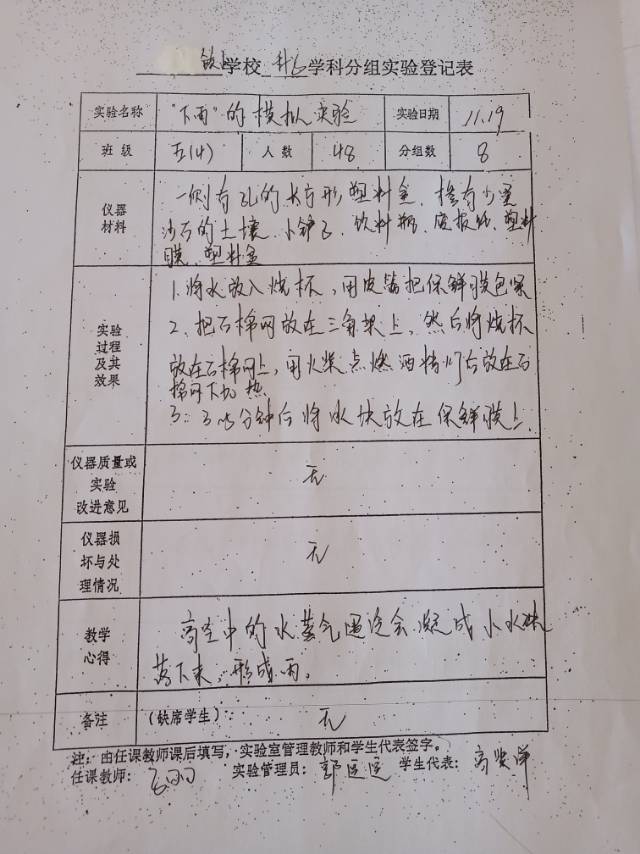 学校 科学学科分组实验登记表
实验名称 "下雨"的模拟实验 实验日期 11.19
班 级 五(4) 人 数 48 分组数 8
仪器材料 一侧有孔的长方形塑料盒、掺有少量
沙石的土壤、小铲子、饮料瓶、废报纸、塑料
膜、塑料盒
实验过程及其效果 1.将水放入烧杯,用皮筋把保鲜膜包紧
2、把石棉网放在三角架上,然后将烧杯
放在石棉网上,用火柴点燃酒精灯后放在石
棉网下加热
3:3~5分钟后将冰块放在保鲜膜上
仪器质量或实验改进意见 无
仪器损坏与处理情况 无
教学心得 高空中的水蒸气遇冷会凝成小水珠
落下来,形成雨。
备注 (缺席学生): 无
注:由任课教师课后填写,实验室管理教师和学生代表签字。
任课教师: 实验管理员: 学生代表: